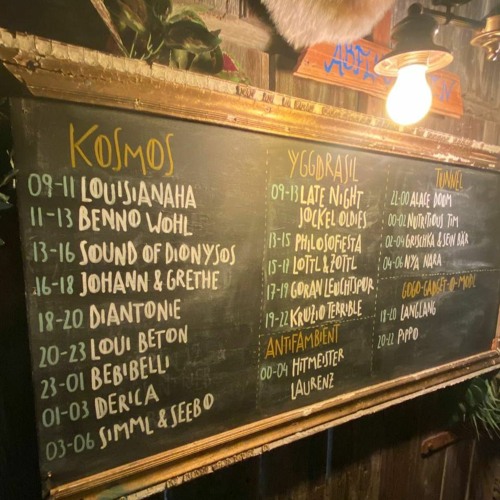 KOSMOS
09-11 LOUISIANAHA
11-13 BENNO WOHL
13-16 SOUND OF DIONYSOS
16-18 JOHANN & GRETHE
18-20 DIANTONIE
20-23 LOUI BETON
23-01 BEBIBELLI
01-03 DERICA
03-06 SIMML & SEEBO
YGGDRASIL
09-13 LATE NIGHT
JOCKEL OLDIES
13-15 PHILOSOFIESTA
15-17 LOTTL & ZOTTL
17-19 GORAN LEUCHTSPUR
19-22 KRUZIO TERRIBLE
ANTIFAMBIENT
00-04 HITMEISTER
LAURENZ
TUNNEL
22-00 ALACE DOOM
00-02 NUTRITIOUS TIM
02-04 GRUSCHKA & SEIN BÄR
04-06 NYA NARA
GOGO-GADGET-O-MOBIL
18-20 LANGLANG
20-22 PIPPO